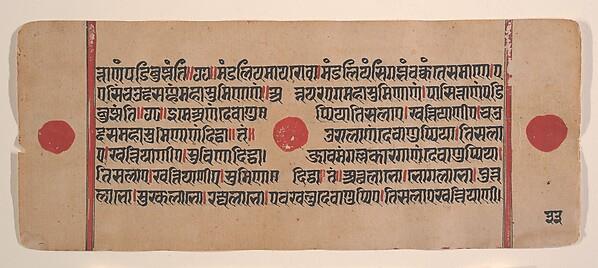 त्ताणं पडिबुज्झंति॥७७॥ मंडलियमायरो वा॥ मंडलियंसि गब्भं वक्कंते समाणे॥ ए
एसिं चउद्दसण्हं महासुमिणाणं॥ अन्नयरं एगं महासुमिणं॥ पासित्ताणं पडि
बुज्झंति॥ इमे य णं देवाणुप्पिया तिसलाए। खत्तियाणीए। चउ
द्दस महासुमिणा दिट्ठा॥ तं॥ उराला णं देवाणुप्पिया। तिसला
ए। खत्तियाणीए। सुमिणा दिट्ठा। जाव मंगल्लकारगा णं देवाणुप्पिया।
तिसलाए। खत्तियाणीए। सुमिणा दिट्ठा॥ तं॥ अत्थलाभो। भोगलाभो। पुत्त
लाभो। सुक्खलाभो। रज्जलाभो। एवं खलु देवाणुप्पिए। तिसला खत्तियाणी।
३३